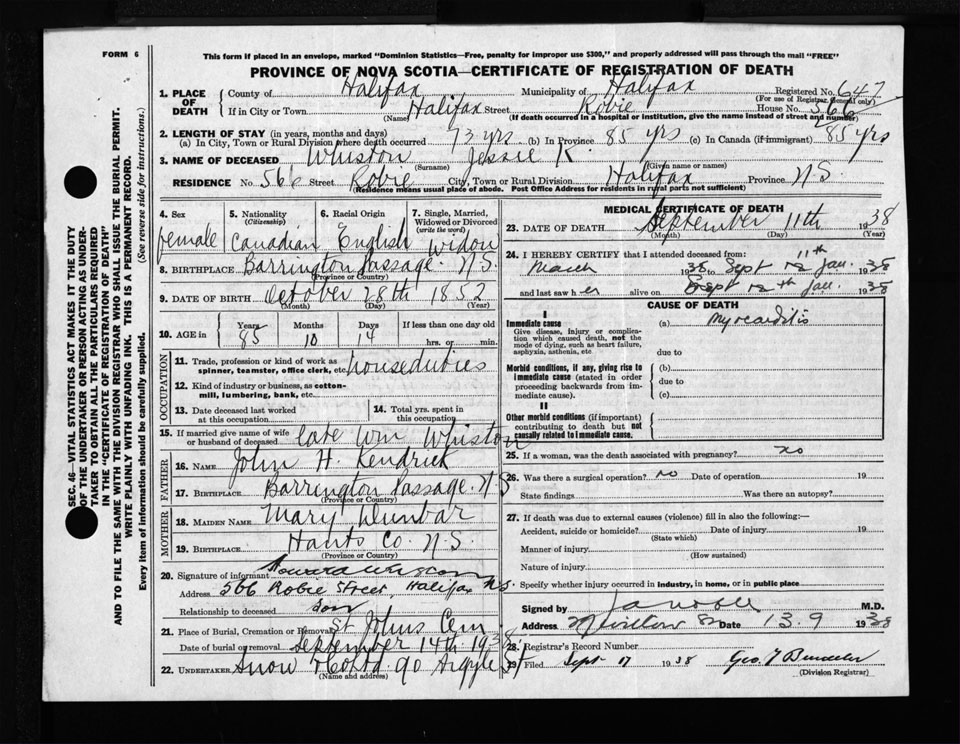 FORM 6
This form if placed in an envelope, marked "Dominion Statistics—Free, penalty for improper use $300," and properly addressed will pass through the mail "FREE"
PROVINCE OF NOVA SCOTIA—CERTIFICATE OF REGISTRATION OF DEATH
1. PLACE OF DEATH
County of Halifax Municipality of Halifax Registered No. 647
(For use of Registrar General only)
If in City or Town Halifax Street Robie House No. 566
(Name) (If death occurred in a hospital or institution, give the name instead of street and number)
2. LENGTH OF STAY (in years, months and days)
(a) In City, Town or Rural Division where death occurred 73 yrs (b) In Province 85 yrs (c) In Canada (if immigrant) 85 yrs
3. NAME OF DECEASED Whiston Jessie K.
(Surname) (Given name or names)
RESIDENCE No. 566 Street Robie City, Town or Rural Division Halifax Province N.S.
(Residence means usual place of abode. Post Office Address for residents in rural parts not sufficient)
SEC. 46—VITAL STATISTICS ACT MAKES IT THE DUTY
OF THE UNDERTAKER OR PERSON ACTING AS UNDER-
TAKER TO OBTAIN ALL THE PARTICULARS REQUIRED
IN THE "CERTIFICATE OF REGISTRATION OF DEATH"
AND TO FILE THE SAME WITH THE DIVISION REGISTRAR WHO SHALL ISSUE THE BURIAL PERMIT.
WRITE PLAINLY WITH UNFADING INK. THIS IS A PERMANENT RECORD.
Every item of information should be carefully supplied. (See reverse side for instructions.)
4. Sex female
5. Nationality (Citizenship) Canadian
6. Racial Origin English
7. Single, Married, Widowed or Divorced (write the word) Widow
8. BIRTHPLACE Barrington Passage. N.S.
(Province or Country)
9. DATE OF BIRTH October 28th 1852
(Month) (Day) (Year)
10. AGE in Years 85 Months 10 Days 14 If less than one day old hrs. or min.
OCCUPATION
11. Trade, profession or kind of work as spinner, teamster, office clerk, etc. houseduties
12. Kind of industry or business, as cotton-mill, lumbering, bank, etc.
13. Date deceased last worked at this occupation
14. Total yrs. spent in this occupation
15. If married give name of wife or husband of deceased late Wm Whiston
FATHER
16. NAME John H. Kendrick
17. BIRTHPLACE Barrington Passage. N.S
(Province or Country)
MOTHER
18. MAIDEN NAME Mary Dunbar
19. BIRTHPLACE Hants Co. N.S.
(Province or Country)
20. Signature of informant Howard Whiston
Address 566 Robie Street, Halifax N.S.
Relationship to deceased Son
21. Place of Burial, Cremation or Removal St Johns Cem
Date of burial or removal September 14th. 1938.
22. UNDERTAKER Snow & Co Ltd 90 Argyle St
(Name and address)
MEDICAL CERTIFICATE OF DEATH
23. DATE OF DEATH September 11th 1938
(Month) (Day) (Year)
24. I HEREBY CERTIFY that I attended deceased from: 11th
March 1938 to Sept 1938
and last saw her alive on Sept 1938
CAUSE OF DEATH
I
Immediate cause
Give disease, injury or complication which caused death, not the mode of dying, such as heart failure, asphyxia, asthenia, etc
(a) Myocarditis
due to
Morbid conditions, if any, giving rise to immediate cause (stated in order proceeding backwards from immediate cause).
(b)
due to
(c)
II
Other morbid conditions (if important) contributing to death but not causally related to immediate cause.
25. If a woman, was the death associated with pregnancy? no
26. Was there a surgical operation? no Date of operation 19
State findings Was there an autopsy?
27. If death was due to external causes (violence) fill in also the following:—
Accident, suicide or homicide? Date of injury 19
(State which)
Manner of injury
(How sustained)
Nature of injury
Specify whether injury occurred in industry, in home, or in public place
Signed by M.D.
Address Date 13.9 1938
28. Registrar's Record Number
29. Filed Sept 17 1938 Geo.
(Division Registrar)